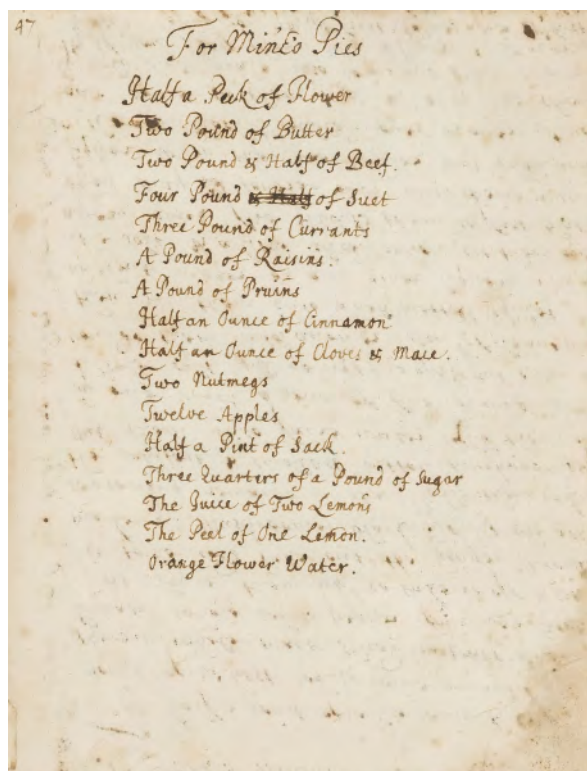 47
For Minc'd Pies
Half a Peck of Flower
Two Pound of Butter
Two Pound & Half of Beef.
Four Pound & Half of Suet
Three Pound of Currants
A Pound of Raisins.
A Pound of Pruins
Half an Ounce of Cinnamon
Half an Ounce of Cloves & Mace.
Two Nutmegs
Twelve Apples
Half a Pint of Sack.
Three Quarters of a Pound of Sugar
The Juice of Two Lemons
The Peel of One Lemon.
Orange Flower Water.